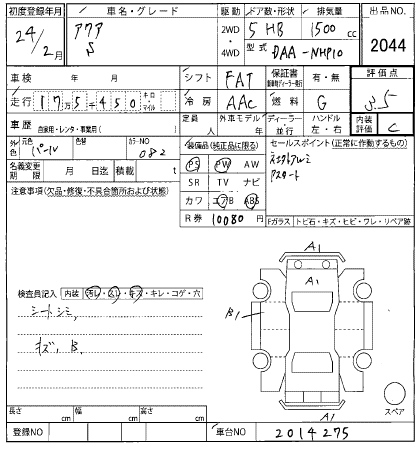 初度登録年月 車名・グレード 駆動 ドア数・形状 排気量 出品NO.
24/2月 アクア S 2WD ・ 4WD 5 HB 1500 cc 2044
型式 DAA-NHP10
車検 年 月 シフト FAT 保証書 有・無 評価点
走行 17万5=450 キロ・マイル 冷房 AAC 燃料 G 3.5
車歴 自家用・レンタ・事業用( ) 定員 人 外車モデル 年 ディーラー・並行 ハンドル 左・右 内装評価 C
外色 元色 パール 色替 カラーNO 082 装備品(純正品に限る) セールスポイント(正常に作動するもの)
名義変更期限 月 日迄 積載 t PS PW AW
注意事項(欠品・修復・不具合箇所および状態) SR TV ナビ
カワ エアB ABS
R券 10080円 Fガラス トビ石・キズ・ヒビ・ワレ・リペア跡
A1
A1
B1
検査員記入 内装 汚レ・スレ・キズ・キレ・コゲ・穴
シートシミ,
キズ, B.
A1
スペア
長さ cm 幅 cm 高さ cm
登録NO 車台NO 2014275